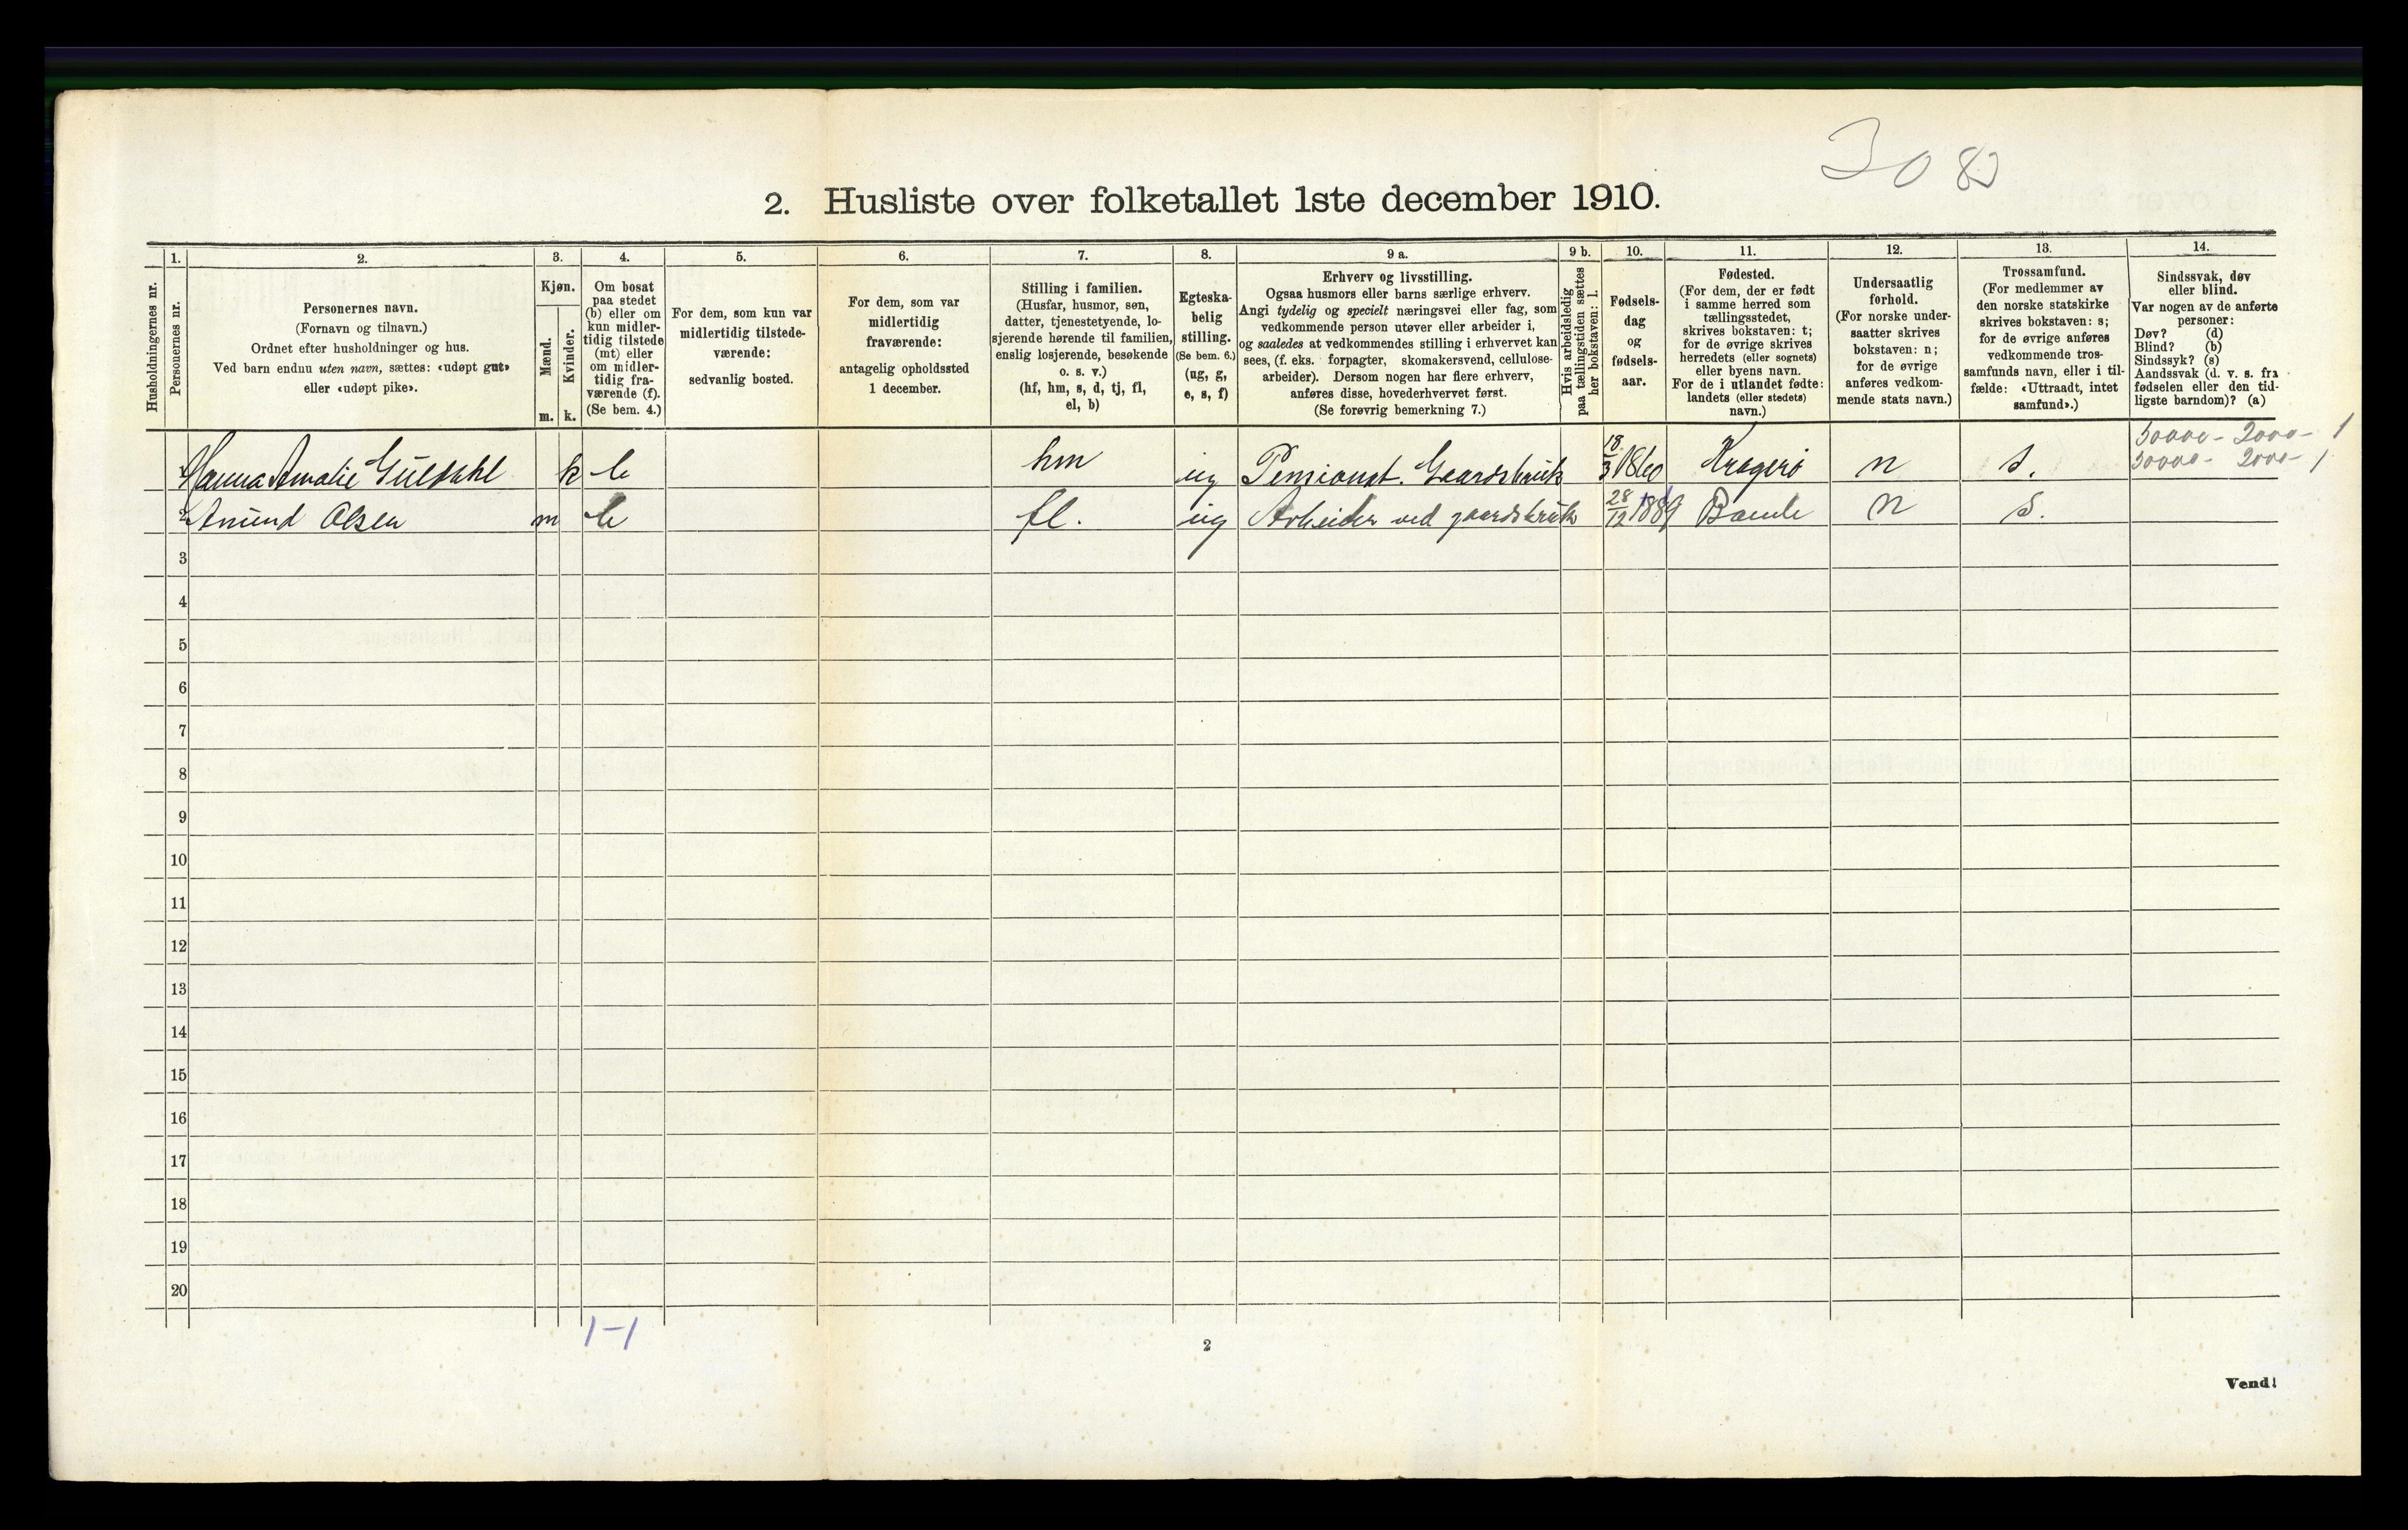 308
2. Husliste over folketallet 1ste december 1910.
Husholdningernes nr.
1.
Personernes nr.
2.
Personernes navn.
(Fornavn og tilnavn.)
Ordnet efter husholdninger og hus.
Ved barn endnu uten navn, sættes: «udøpt gut»
eller «udøpt pike».
3.
Kjøn.
Mænd.
Kvinder.
m. k.
4.
Om bosat
paa stedet
(b) eller om
kun midler-
tidig tilstede
(mt) eller
om midler-
tidig fra-
værende (f).
(Se bem. 4.)
5.
For dem, som kun var
midlertidig tilstede-
værende:
sedvanlig bosted.
6.
For dem, som var
midlertidig
fraværende:
antagelig opholdssted
1 december.
7.
Stilling i familien.
(Husfar, husmor, søn,
datter, tjenestetyende, lo-
sjerende hørende til familien,
enslig losjerende, besøkende
o. s. v.)
(hf, hm, s, d, tj, fl,
el, b)
8.
Egteska-
belig
stilling.
(Se bem. 6.)
(ug, g,
e, s, f)
9 a.
Erhverv og livsstilling.
Ogsaa husmors eller barns særlige erhverv.
Angi tydelig og specielt næringsvei eller fag, som
vedkommende person utøver eller arbeider i,
og saaledes at vedkommendes stilling i erhvervet kan
sees, (f. eks. forpagter, skomakersvend, cellulose-
arbeider). Dersom nogen har flere erhverv,
anføres disse, hovederhvervet først.
(Se forøvrig bemerkning 7.)
9 b.
Hvis arbeidsledig
paa tællingstiden sættes
her bokstaven: l.
10.
Fødsels-
dag
og
fødsels-
aar.
11.
Fødested.
(For dem, der er født
i samme herred som
tællingsstedet,
skrives bokstaven: t;
for de øvrige skrives
herredets (eller sognets)
eller byens navn.
For de i utlandet fødte:
landets (eller stedets)
navn.)
12.
Undersaatlig
forhold.
(For norske under-
saatter skrives
bokstaven: n;
for de øvrige
anføres vedkom-
mende stats navn.)
13.
Trossamfund.
(For medlemmer av
den norske statskirke
skrives bokstaven: s;
for de øvrige anføres
vedkommende tros-
samfunds navn, eller i til-
fælde: «Uttraadt, intet
samfund».)
14.
Sindssvak, døv
eller blind.
Var nogen av de anførte
personer:
Døv? (d)
Blind? (b)
Sindssyk? (s)
Aandssvak (d. v. s. fra
fødselen eller den tid-
ligste barndom)? (a)
50000 - 2000 - 1
30000 - 2000 - 1
1 Hanna Amalie Guldahl k b hm ug Pensionat. Gaardsbruk 18/3 1860 Kragerø n s.
2 Amund Olsen m b fl. ug Arbeider ved gaardsbruk 28/12 1889 Bamle n s.
3
4
5
6
7
8
9
10
11
12
13
14
15
16
17
18
19
20
1-1
2
Vend!